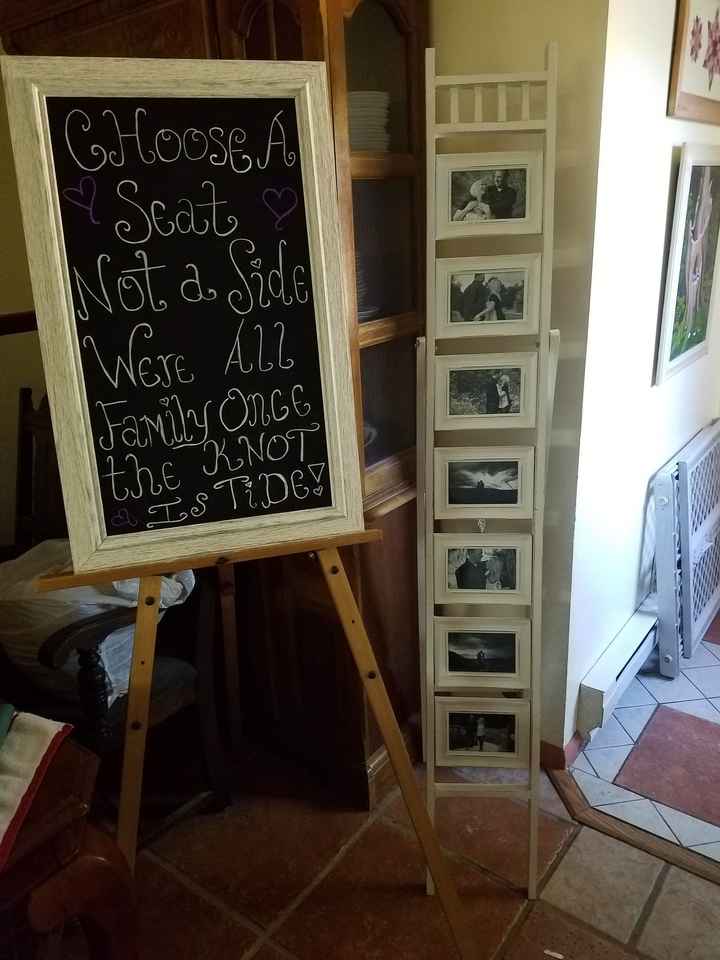 CHOOSE A
Seat
Not a Side
WERE All
Family ONCE
the KNOT
Is TiDE!